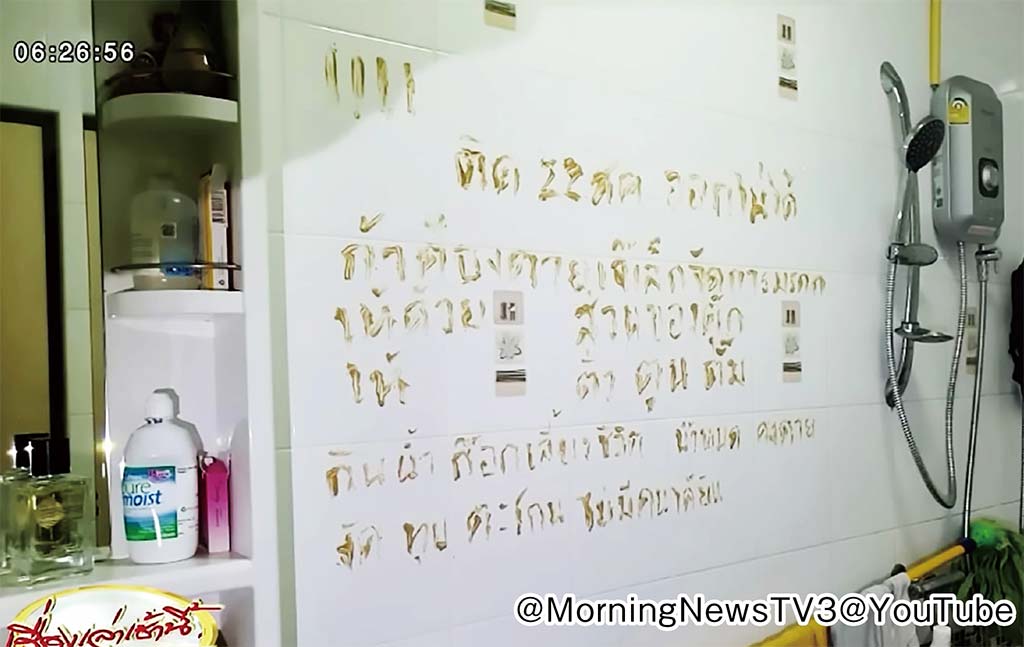 06:26:56
ติด 22 สค ออกไม่ได้
ถ้าต้องตายเจ๊เล็กจัดการมรดก
ให้ด้วย ส่วนของตุ๊ก
ให้ ต้า ตูน ตั้ม
กินน้ำ ก๊อกเลี้ยงชีวิต น้ำหมด คงตาย
งัด ทุบ ตะโกน ไม่มีคนได้ยิน
pure
moist
เรื่องเล่าเช้านี้
@MorningNewsTV3@YouTube